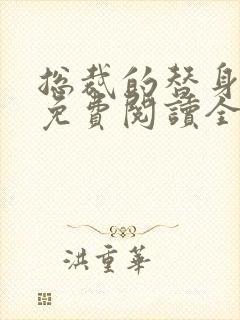 总裁的替身
免費閱讀全
洪重華